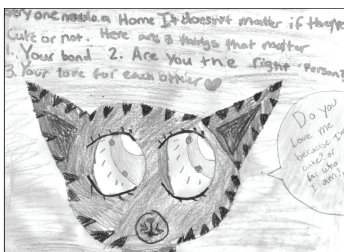 everyone needs a Home It doesn't matter if they're
Cute or not. Here are 3 things that matter
1. Your bond 2. Are You the right Person?
3. Your love for each other
Do you
love me
because I'm
cute? or
who
I am?